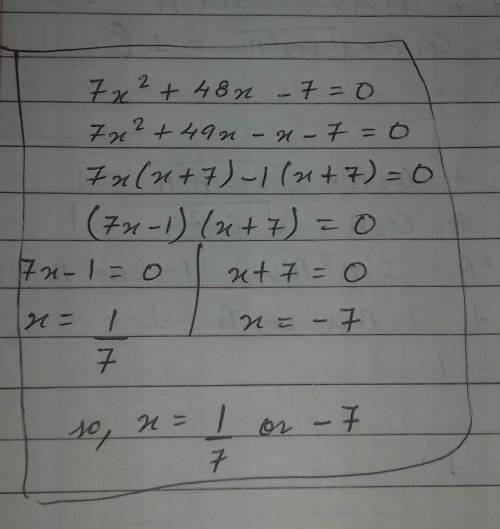 7x² + 48x - 7 = 0
7x² + 49x - x - 7 = 0
7x(x+7) - 1(x+7) = 0
(7x-1) (x+7) = 0
7x-1 = 0 | x+7 = 0
x = 1/7 | x = -7
so, x = 1/7 or -7